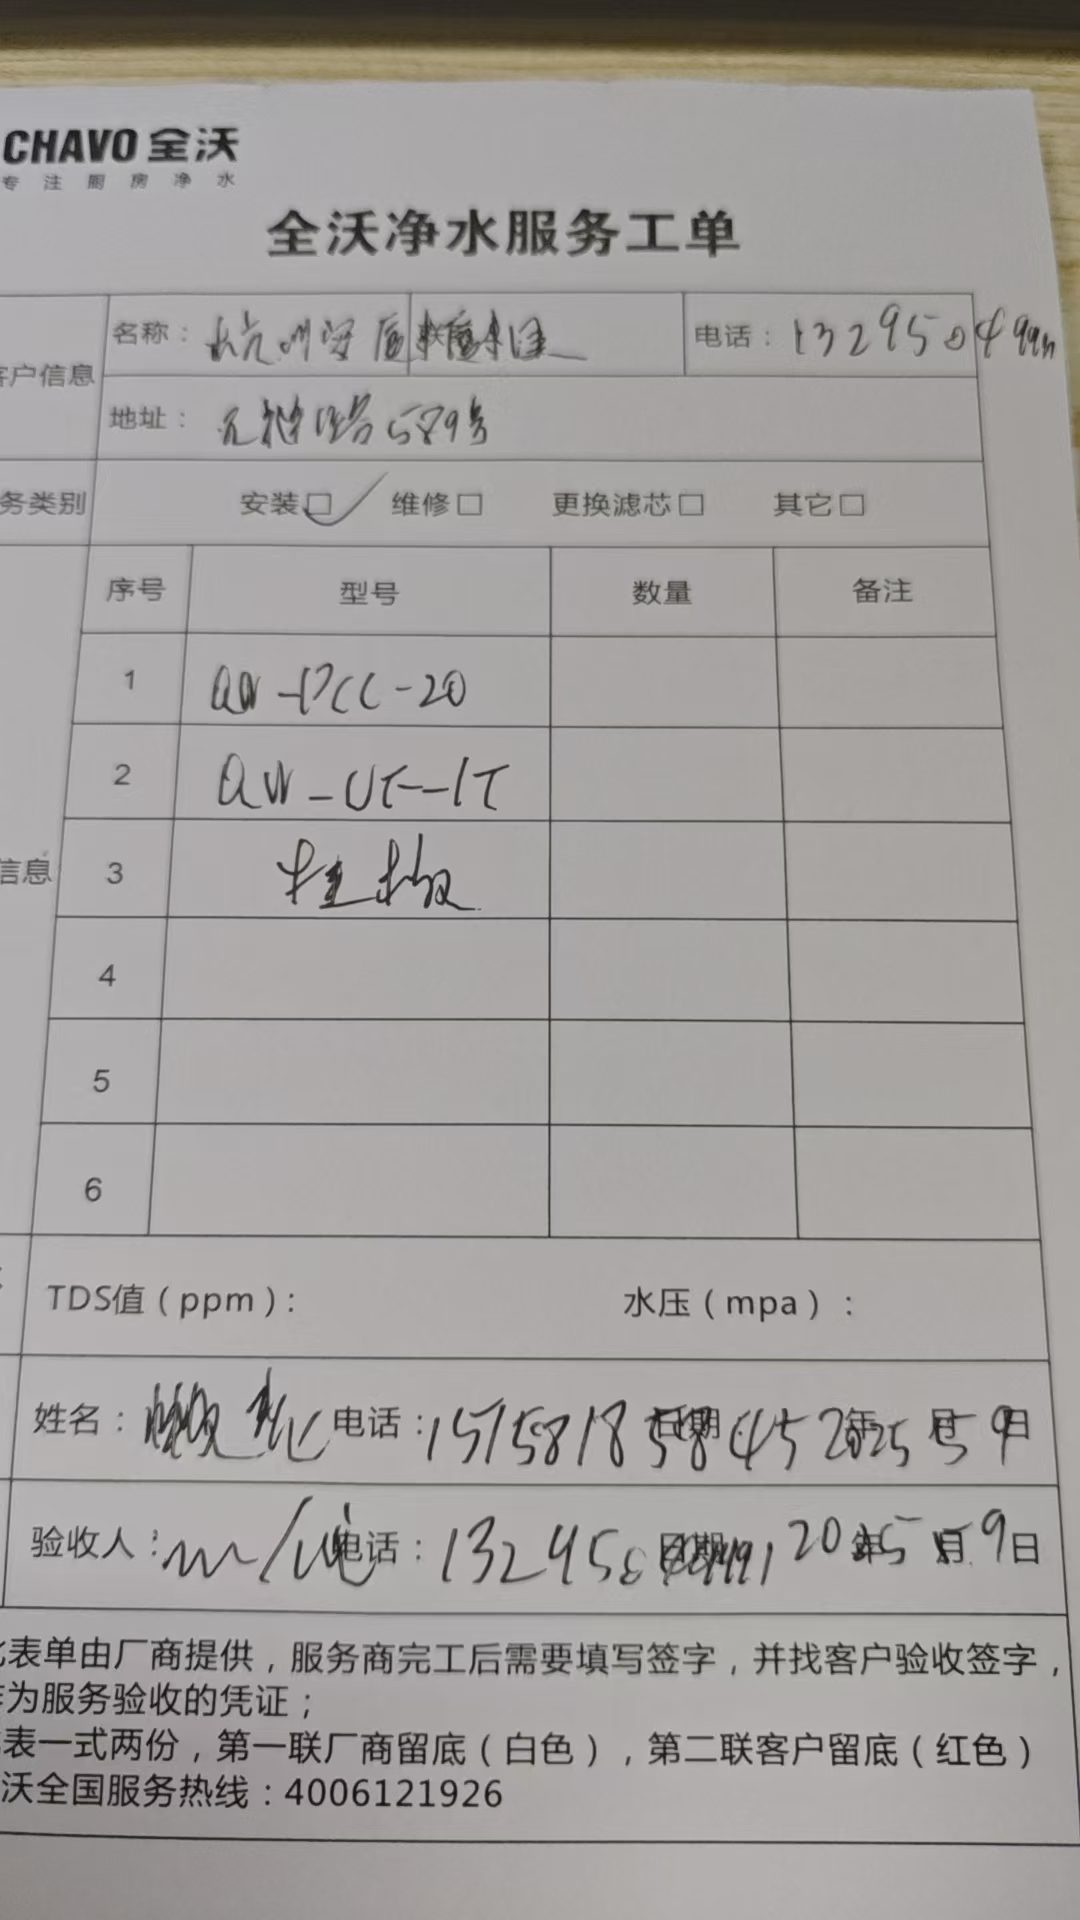 CHAVO 全沃
专注厨房净水
全沃净水服务工单
客户信息
名称：杭州
电话：13295
地址：元 路589号
务类别
安装□ ✓ 维修□ 更换滤芯□ 其它□
序号 型号 数量 备注
1 QW-PCC-20
2 QW-UF-1T
信息
3
4
5
6
TDS值（ppm）: 水压（mpa）:
姓名： 电话：1515818 日期 2025年 5月 9日
验收人： 电话： 日期 2025年 5月 9日
此表单由厂商提供，服务商完工后需要填写签字，并找客户验收签字，
作为服务验收的凭证；
表一式两份，第一联厂商留底（白色），第二联客户留底（红色）
沃全国服务热线：4006121926